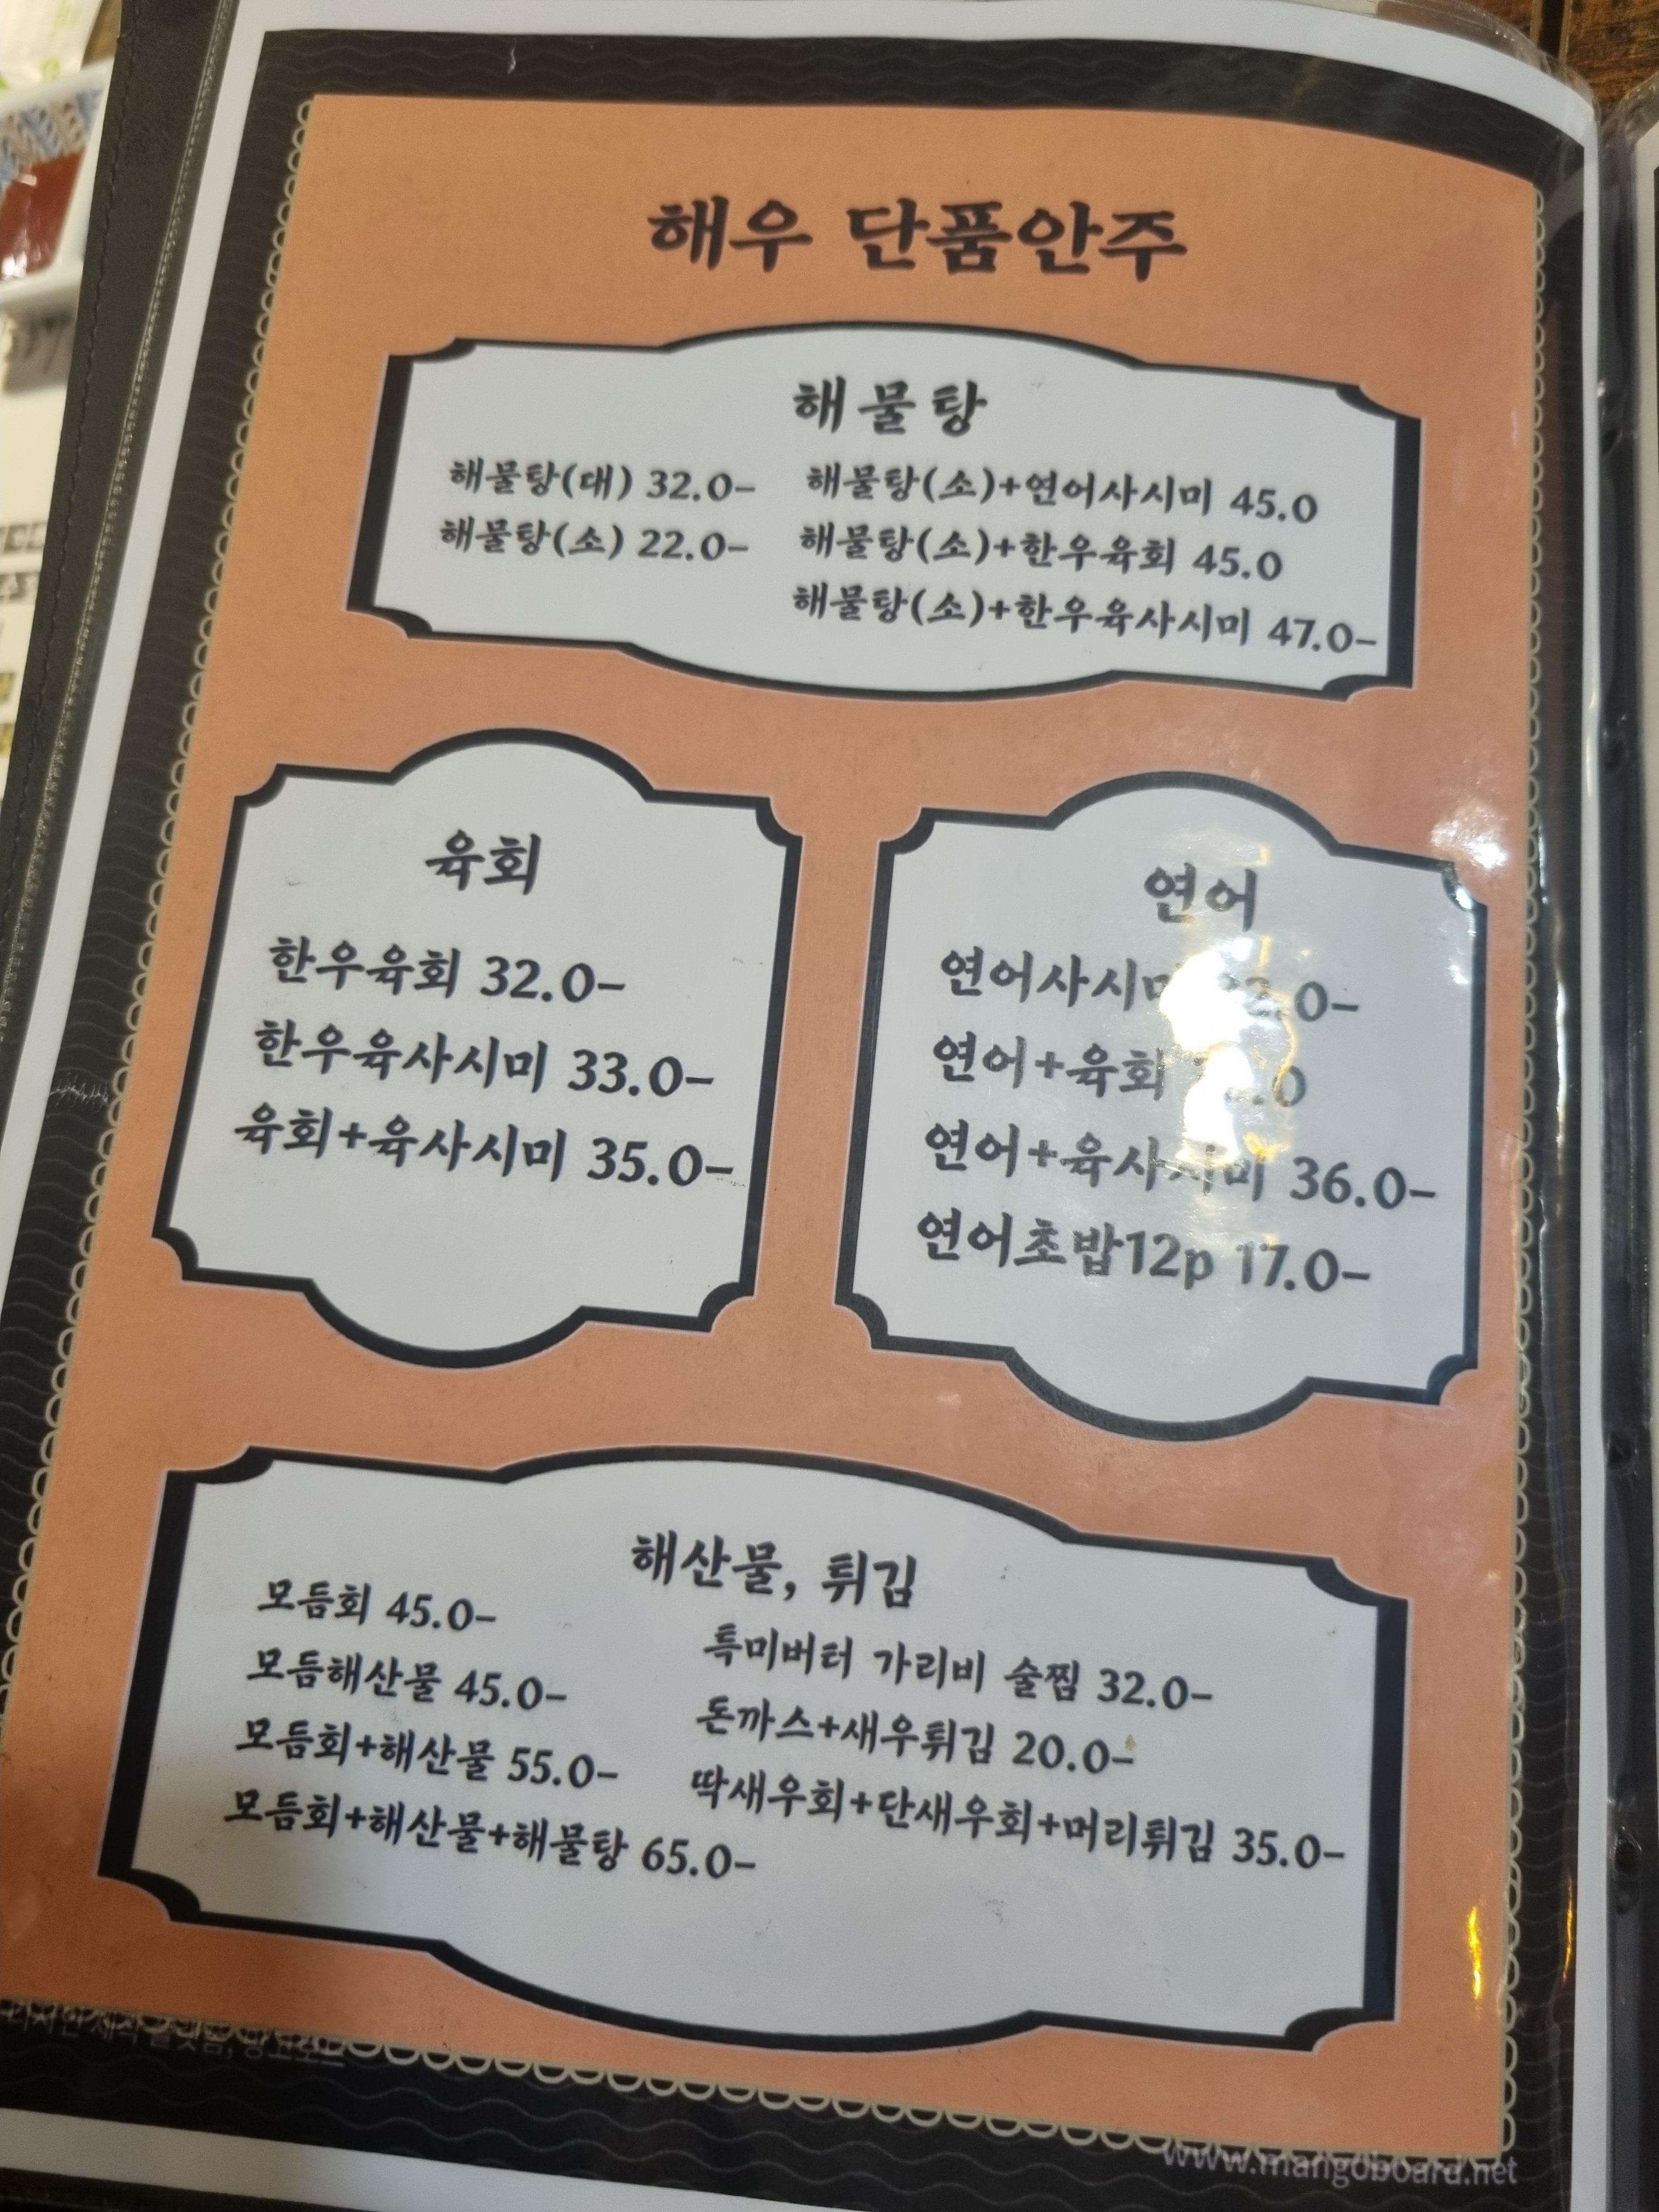 해우 단품안주
해물탕
해물탕(대) 32.0-
해물탕(소) 22.0-
해물탕(소)+연어사시미 45.0
해물탕(소)+한우육회 45.0
해물탕(소)+한우육사시미 47.0-
육회
한우육회 32.0-
한우육사시미 33.0-
육회+육사시미 35.0-
연어
연어사시미
연어+육회
연어+육사시미 36.0-
연어초밥12p 17.0-
해산물, 튀김
모듬회 45.0-
모듬해산물 45.0-
모듬회+해산물 55.0-
모듬회+해산물+해물탕 65.0-
특미버터 가리비 술찜 32.0-
돈까스+새우튀김 20.0-
딱새우회+단새우회+머리튀김 35.0-
www.mangoboard.net